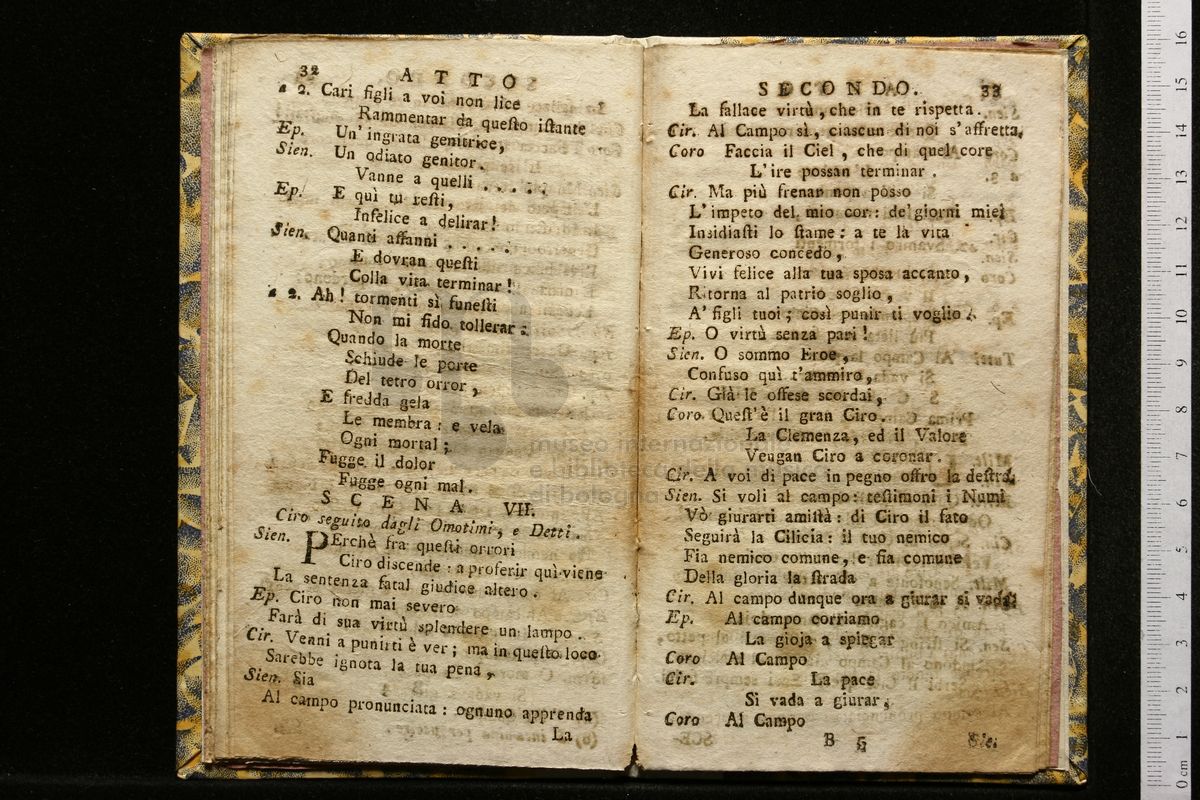 32 ATTO
a 2. Cari figli a voi non lice
Rammentar da questo istante
Ep. Un' ingrata genitrice,
Sien. Un odiato genitor.
Vanne a quelli . . . . .
Ep. E quì tu resti,
Infelice a delirar!
Sien. Quanti affanni . . . . .
E dovran questi
Colla vita terminar!
a 2. Ah! tormenti sì funesti
Non mi fido tollerar:
Quando la morte
Schiude le porte
Del tetro orror,
E fredda gela
Le membra: e vela
Ogni mortal;
Fugge il dolor
Fugge ogni mal.
SCENA VII.
Ciro seguito dagli Omotimi, e Detti.
Sien. PErchè fra questi orrori
Ciro discende: a proferir quì viene
La sentenza fatal giudice altero.
Ep. Ciro non mai severo
Farà di sua virtù splendere un lampo.
Cir. Venni a punirti è ver; ma in questo loco
Sarebbe ignota la tua pena,
Sien. Sia
Al campo pronunciata: ognuno apprenda
La
SECONDO. 33
La fallace virtù, che in te rispetta.
Cir. Al Campo sì, ciascun di noi s'affretta.
Coro Faccia il Ciel, che di quel core
L'ire possan terminar.
Cir. Ma più frenar non posso
L'impeto del mio cor: de' giorni miei
Insidiasti lo stame: a te la vita
Generoso concedo,
Vivi felice alla tua sposa accanto,
Ritorna al patrio soglio,
A' figli tuoi; così punir ti voglio.
Ep. O virtù senza pari!
Sien. O sommo Eroe,
Confuso quì t'ammiro,
Cir. Già le offese scordai,
Coro. Quest'è il gran Ciro.
La Clemenza, ed il Valore
Vengan Ciro a coronar.
Cir. A voi di pace in pegno offro la destra.
Sien. Si voli al campo: testimoni i Numi
Vò giurarti amistà: di Ciro il fato
Seguirà la Cilicia: il tuo nemico
Fia nemico comune, e fia comune
Della gloria la strada
Cir. Al campo dunque ora a giurar si vada.
Ep. Al campo corriamo
La gioja a spiegar
Coro Al Campo
Cir. La pace
Si vada a giurar,
Coro Al Campo
B 5
museo internazionale
e biblioteca della musica
di bologna